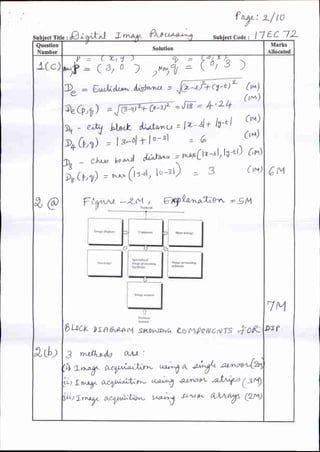 Page: 2/10
Subject Title: Digital Image Processing Subject Code: 17EC72
Question Number Solution Marks Allocated
p = (x, y) q = (s, t)
1(c) p = (3, 0) q = (0, 3)
De - Euclidean distance = √(x-s)²+(y-t)² (1M)
De(p,q) = √(3-0)²+(0-3)² = √18 = 4.24 (1M)
D4 - city block distance = |x-s|+|y-t| (1M)
D4(p,q) = |3-0|+|0-3| = 6 (1M)
D8 - chess board distance = max(|x-s|,|y-t|) (1M)
D8(p,q) = max(|3-0|, |0-3|) = 3 (1M) 6M
2 (a) Figure - 2M, Explanation = 5M
Network
Image displays Computer Mass storage
Hardcopy Specialized image processing hardware Image processing software
Image sensors
Problem domain
7M
BLOCK DIAGRAM SHOWING COMPONENTS FOR DIP
2(b) 3 methods are:
(i) Image acquisition using a single sensor (2M)
(ii) Image acquisition using sensor strips (3M)
(iii) Image acquisition using sensor arrays (2M)